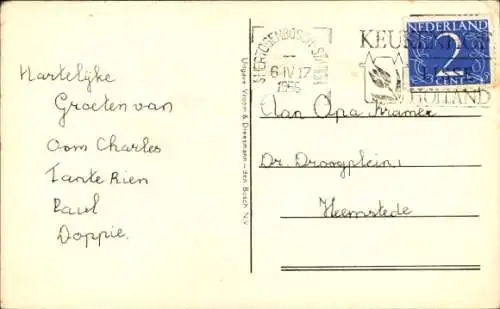 Hartelijke
Groeten van
Oom Charles
Tante Rien
Paul
Doppie.
Uitgave Vroom & Dreesmann - den Bosch N.V.
S HERTOGENBOSCH STATION
6 IV 17
1956
KEUKENHOF
LISSE
HOLLAND
NEDERLAND
2
CENT
Aan Opa Kramer
Dr. Droogplein,
Heemstede